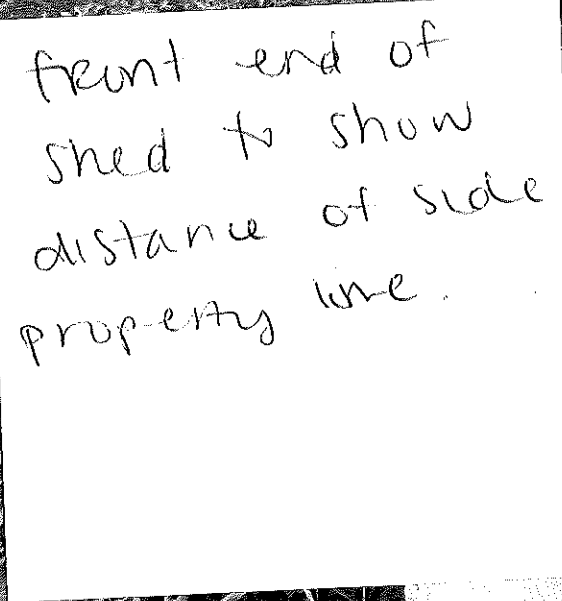 front end of
shed to show
distance of side
property line.